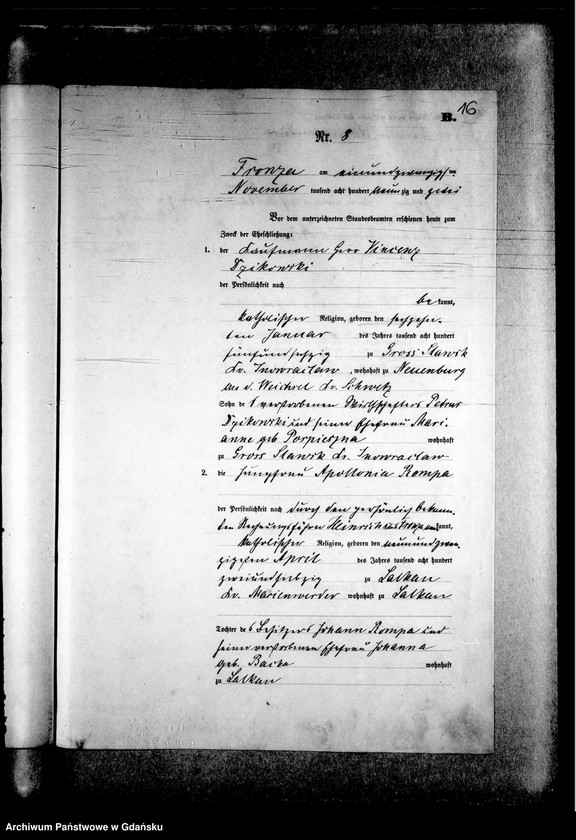 16
B.
Nr. 8
Fronza am einundzwanzigsten
November tausend acht hundert neunzig und zwei
Vor dem unterzeichneten Standesbeamten erschienen heute zum
Zweck der Eheschließung:
1. der Kaufmann Herr Vincenz
Dzikowski
der Persönlichkeit nach
be kannt,
katholischer Religion, geboren den sechzehn-
ten Januar des Jahres tausend acht hundert
fünfundsechzig zu Gross Slawsk
Kr. Inowraclaw, wohnhaft zu Neuenburg
an d. Weichsel Kr. Schwetz
Sohn des verstorbenen Wirthschafters Petrus
Dzikowski und seiner Ehefrau Mari-
anne geb. Pospieszna wohnhaft
zu Gross Slawsk Kr. Inowraclaw
2. die Jungfrau Apollonia Rompa
der Persönlichkeit nach durch den persönlich bekann-
ten Rechnungsführer Heinrich kannt,
katholischer Religion, geboren den neunundzwan-
zigsten April des Jahres tausend acht hundert
zweiundsiebzig zu Lalkau
Kr. Marienwerder wohnhaft zu Lalkau
Tochter des Besitzers Johann Rompa und
seiner verstorbenen Ehefrau Johanna
geb. Backa wohnhaft
zu Lalkau
Archiwum Państwowe w Gdańsku